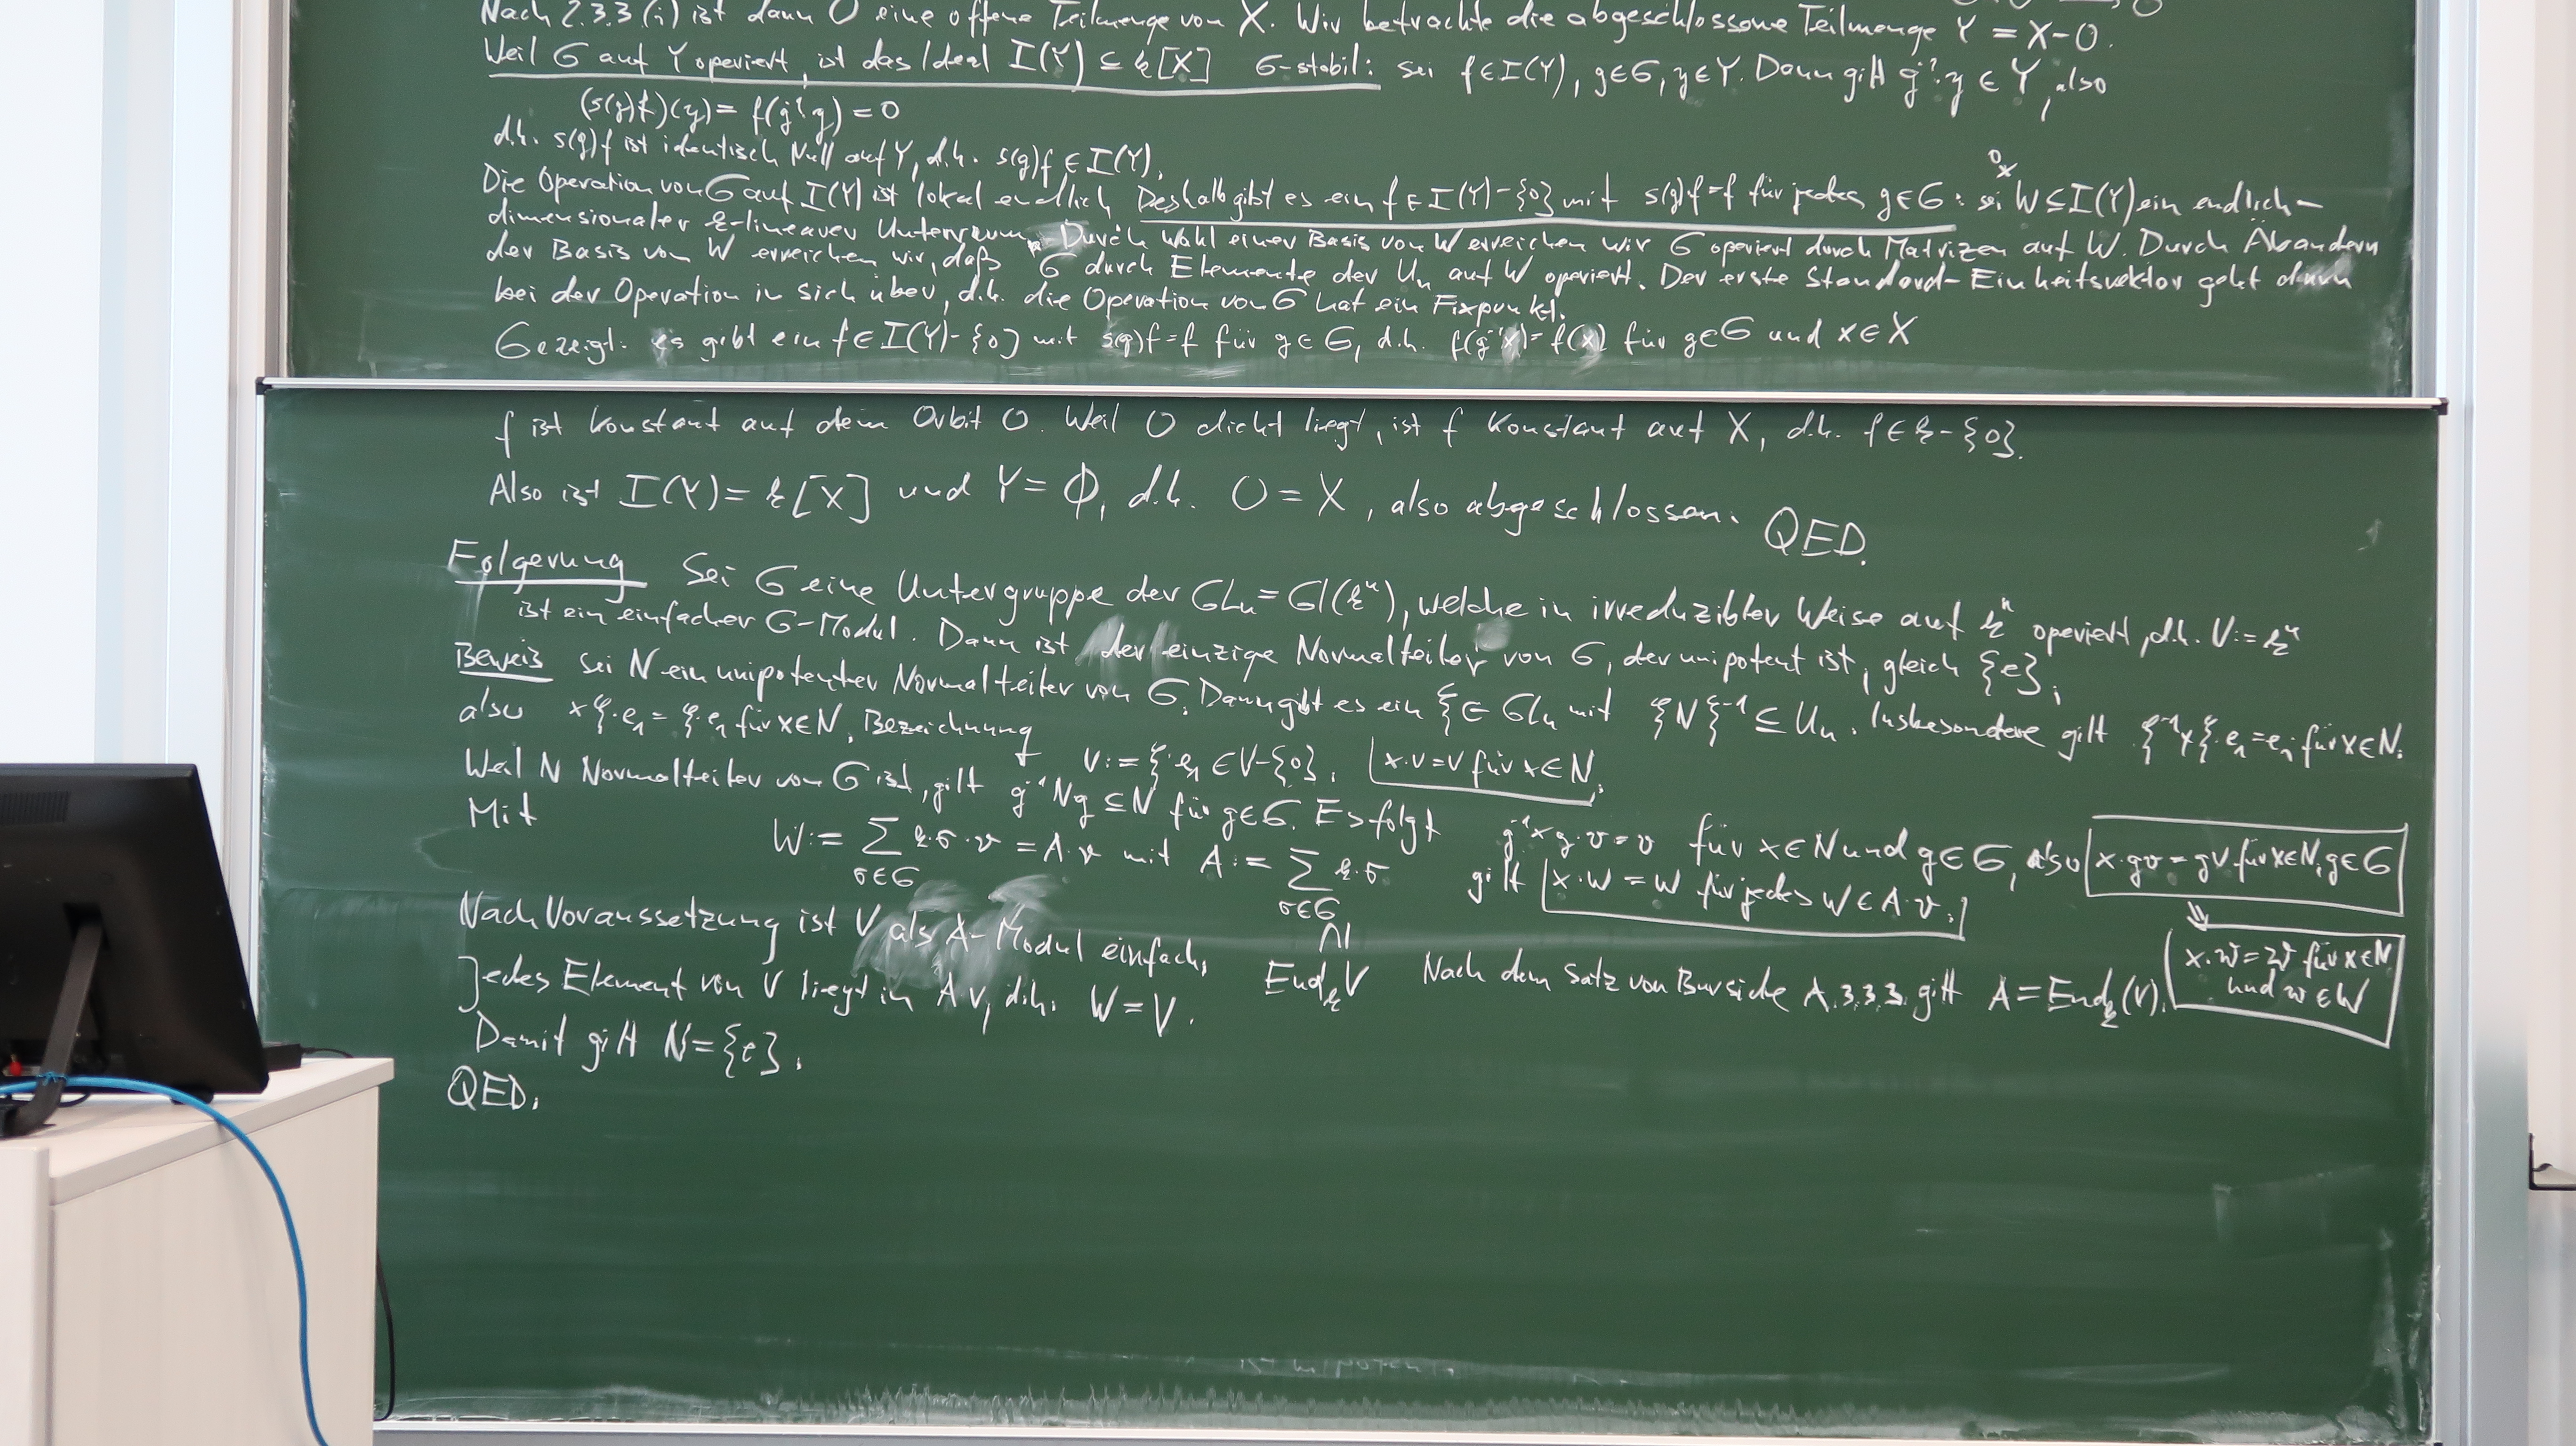 Nach 2.3.3 (i) ist dann O eine offene Teilmenge von X. Wir betrachte die abgeschlossene Teilmenge Y = X-O.
Weil G auf Y operiert, ist das Ideal I(Y) ⊆ k[X] G-stabil: sei f∈I(Y), g∈G, y∈Y. Dann gilt g⁻¹·y ∈ Y, also
(s(g)f)(y) = f(g⁻¹y) = 0
d.h. s(g)f ist identisch Null auf Y, d.h. s(g)f ∈ I(Y).
Die Operation von G auf I(Y) ist lokal endlich. Deshalb gibt es ein f∈I(Y)-{0} mit s(g)f=f für jedes g∈G: sei 0≠W⊆I(Y) ein endlich-
dimensionaler k-linearer Unterraum. Durch Wahl einer Basis von W erreichen wir G operiert durch Matrizen auf W. Durch Abändern
der Basis von W erreichen wir, daß G durch Elemente der Uₙ auf W operiert. Der erste Standard-Einheitsvektor geht dann
bei der Operation in sich über, d.h. die Operation von G hat ein Fixpunkt.
Gezeigt: es gibt ein f∈I(Y)-{0} mit s(g)f=f für g∈G, d.h. f(g⁻¹x)=f(x) für g∈G und x∈X
f ist konstant auf dem Orbit O. Weil O dicht liegt, ist f konstant auf X, d.h. f∈k-{0}.
Also ist I(Y) = k[X] und Y=∅, d.h. O = X, also abgeschlossen. QED.
Folgerung Sei G eine Untergruppe der GLₙ = Gl(kⁿ), welche in irreduzibler Weise auf kⁿ operiert, d.h. V:=kⁿ
ist ein einfacher G-Modul. Dann ist der einzige Normalteiler von G, der unipotent ist, gleich {e}.
Beweis Sei N ein unipotenter Normalteiler von G. Dann gibt es ein ξ∈GLₙ mit ξNξ⁻¹ ⊆ Uₙ. Insbesondere gilt ξ⁻¹xξ·e₁=e₁ für x∈N.
also xξ·e₁ = ξ·e₁ für x∈N. Bezeichnung v:=ξ·e₁ ∈V-{0}. x·v=v für x∈N.
Weil N Normalteiler von G ist, gilt g⁻¹Ng ⊆N für g∈G. Es folgt g⁻¹xg·v=v für x∈N und g∈G, also x·gv=gv für x∈N, g∈G
Mit W:= Σ_{σ∈G} k·σ·v = A·v mit A:= Σ_{σ∈G} k·σ gilt x·w = w für jedes w∈A·v.
⊆ End_k V
x·w=w für x∈N und w∈W
Nach Voraussetzung ist V als A-Modul einfach. Nach dem Satz von Burside A.3.3.3 gilt A=End_k(V).
Jedes Element von V liegt in Av, d.h. W=V.
Damit gilt N={e}.
QED.